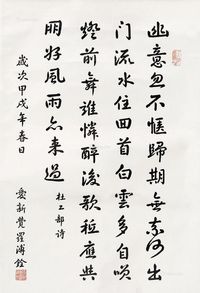 幽意忽不愜歸期無奈何出
门流水住回首白雲多自咲
燈前舞誰憐醉後歌秖應與
朋好風雨亦来過
杜工部诗
歲次甲戌年春日
愛新覺羅溥佺